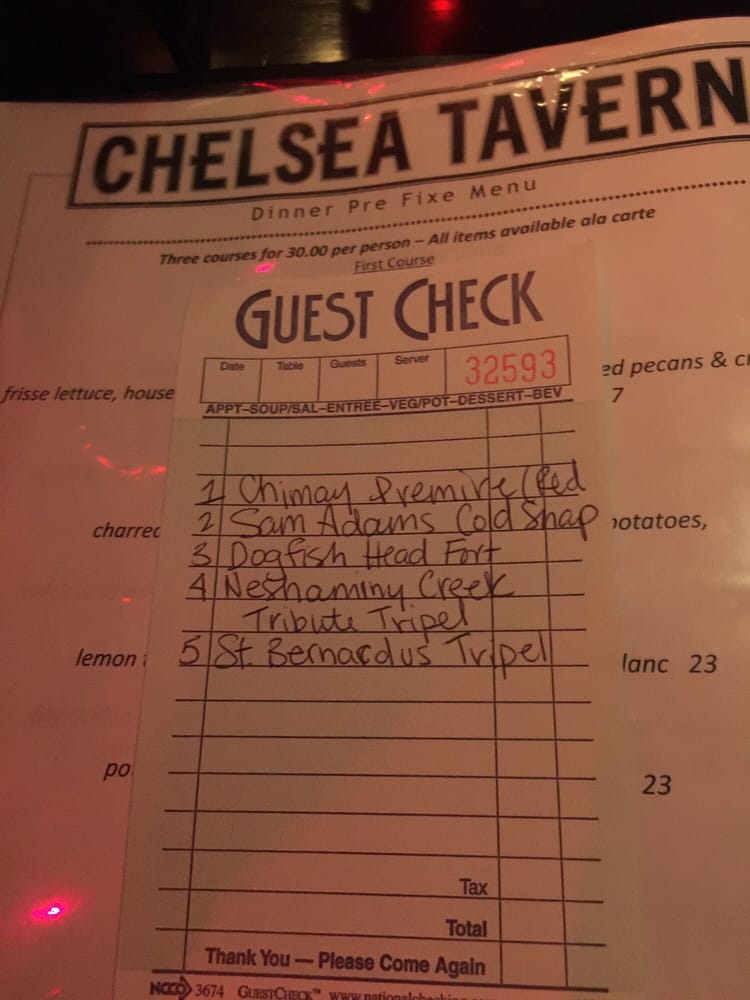 CHELSEA TAVERN
Dinner Pre Fixe Menu
Three courses for 30.00 per person – All items available ala carte
First Course
GUEST CHECK
Date Table Guests Server 32593
APPT–SOUP/SAL–ENTREE–VEG/POT–DESSERT–BEV
frisse lettuce, house
ed pecans & cr
7
1 Chimay Premire (Red
2 Sam Adams Cold Snap
charred
potatoes,
3 Dogfish Head Fort
4 Neshaminy Creek
Tribute Tripel
5 St. Bernardus Tripel
lemon
lanc 23
po
23
Tax
Total
Thank You — Please Come Again
NCCO 3674 GUESTCHECK™